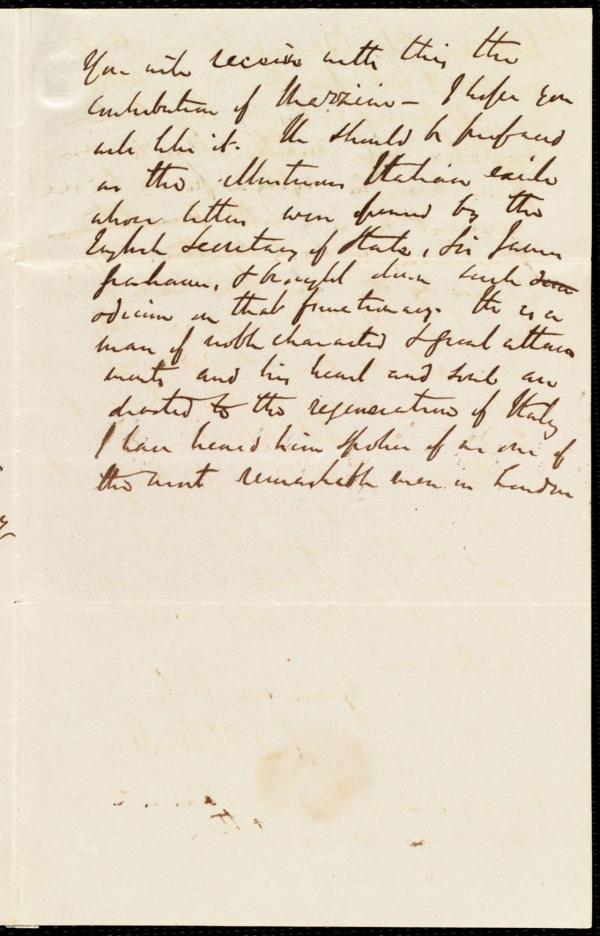 You will receive with this the
contribution of Mazzini – I hope you
will like it. He should be prefaced
as the illustrious Italian exile
whose letters were opened by the
English Secretary of State, Sir James
Graham, & brought down such
odium on that functionary. He is a
man of noble character & great attain
ments and his heart and soul are
devoted to the regeneration of Italy
I have heard him spoken of as one of
the most remarkable men in London